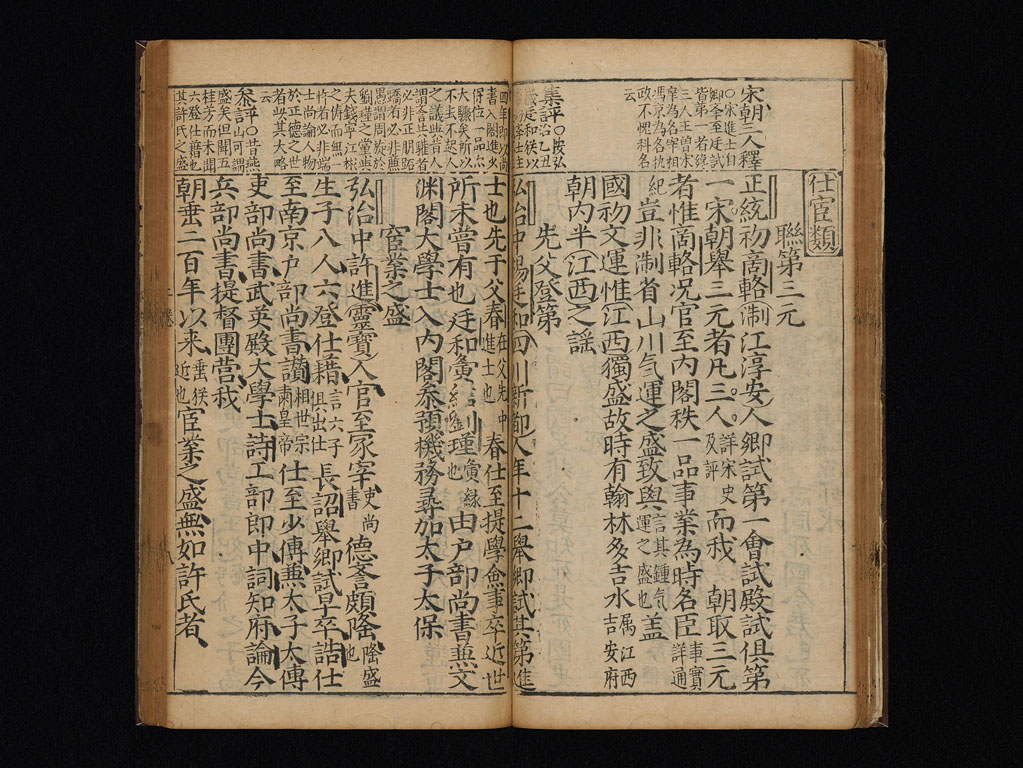 宋朝三人釋
○宋進士自
鄉奉至廷試
皆第一者纔
三人王曾宋
庠為名宰相
馮京為名執
政不愧科名
云
集評○按弘
仕宦類
聯第三元
正統初啇輅淛江淳安人鄉試第一會試殿試俱第
一宋朝舉三元者凡三人詳宋史及評而我 朝取三元
者惟啇輅况官至内閣秩一品事業為時名臣事實詳通
紀豈非淛省山川氣運之盛致與言其鍾氣運之盛也盖
國初文運惟江西獨盛故時有翰林多吉水属江西吉安府
朝内半江西之謡
先父登第
弘治中楊廷和四川新都人年十二舉鄉試其第進
書入閣進少
得位一品尔
大驥矣所以
不生不愁人
之議與昔人
謂父言止雍者
必非正朋
必非薫
愚謂周
劉瑾之黨與
夫錢寧江彬
之儔而無一
忤者必非端
士尚論人物
於正德之世
者此其大略
云
叅評○昔燕
山可謂
盛矣但聞五
桂芳而未聞
六登仕藉也
其許氏之盛
士也先于父春在父先中進士也春仕至提學僉事卒近世
所未嘗有也廷和由户部尚書兼文
渊閣大學士入内閣叅預機務尋加太子太保
宦業之盛
弘治中許進靈寶人官至冢宰吏尚書德頗隆隆盛也
生子八人六登仕藉言六子俱出仕長詔舉鄉試早卒誥仕
至南京户部尚書讚相世宗肅皇帝仕至少傅兼太子太傅
吏部尚書武英殿大學士詩工部郎中詞知府論今
兵部尚書提督團营我
朝垂二百年以来垂後近也宦業之盛無如許氏者